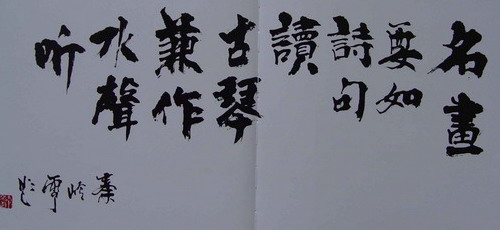 名畫
要如
詩句
讀
古琴
兼作
水聲
听